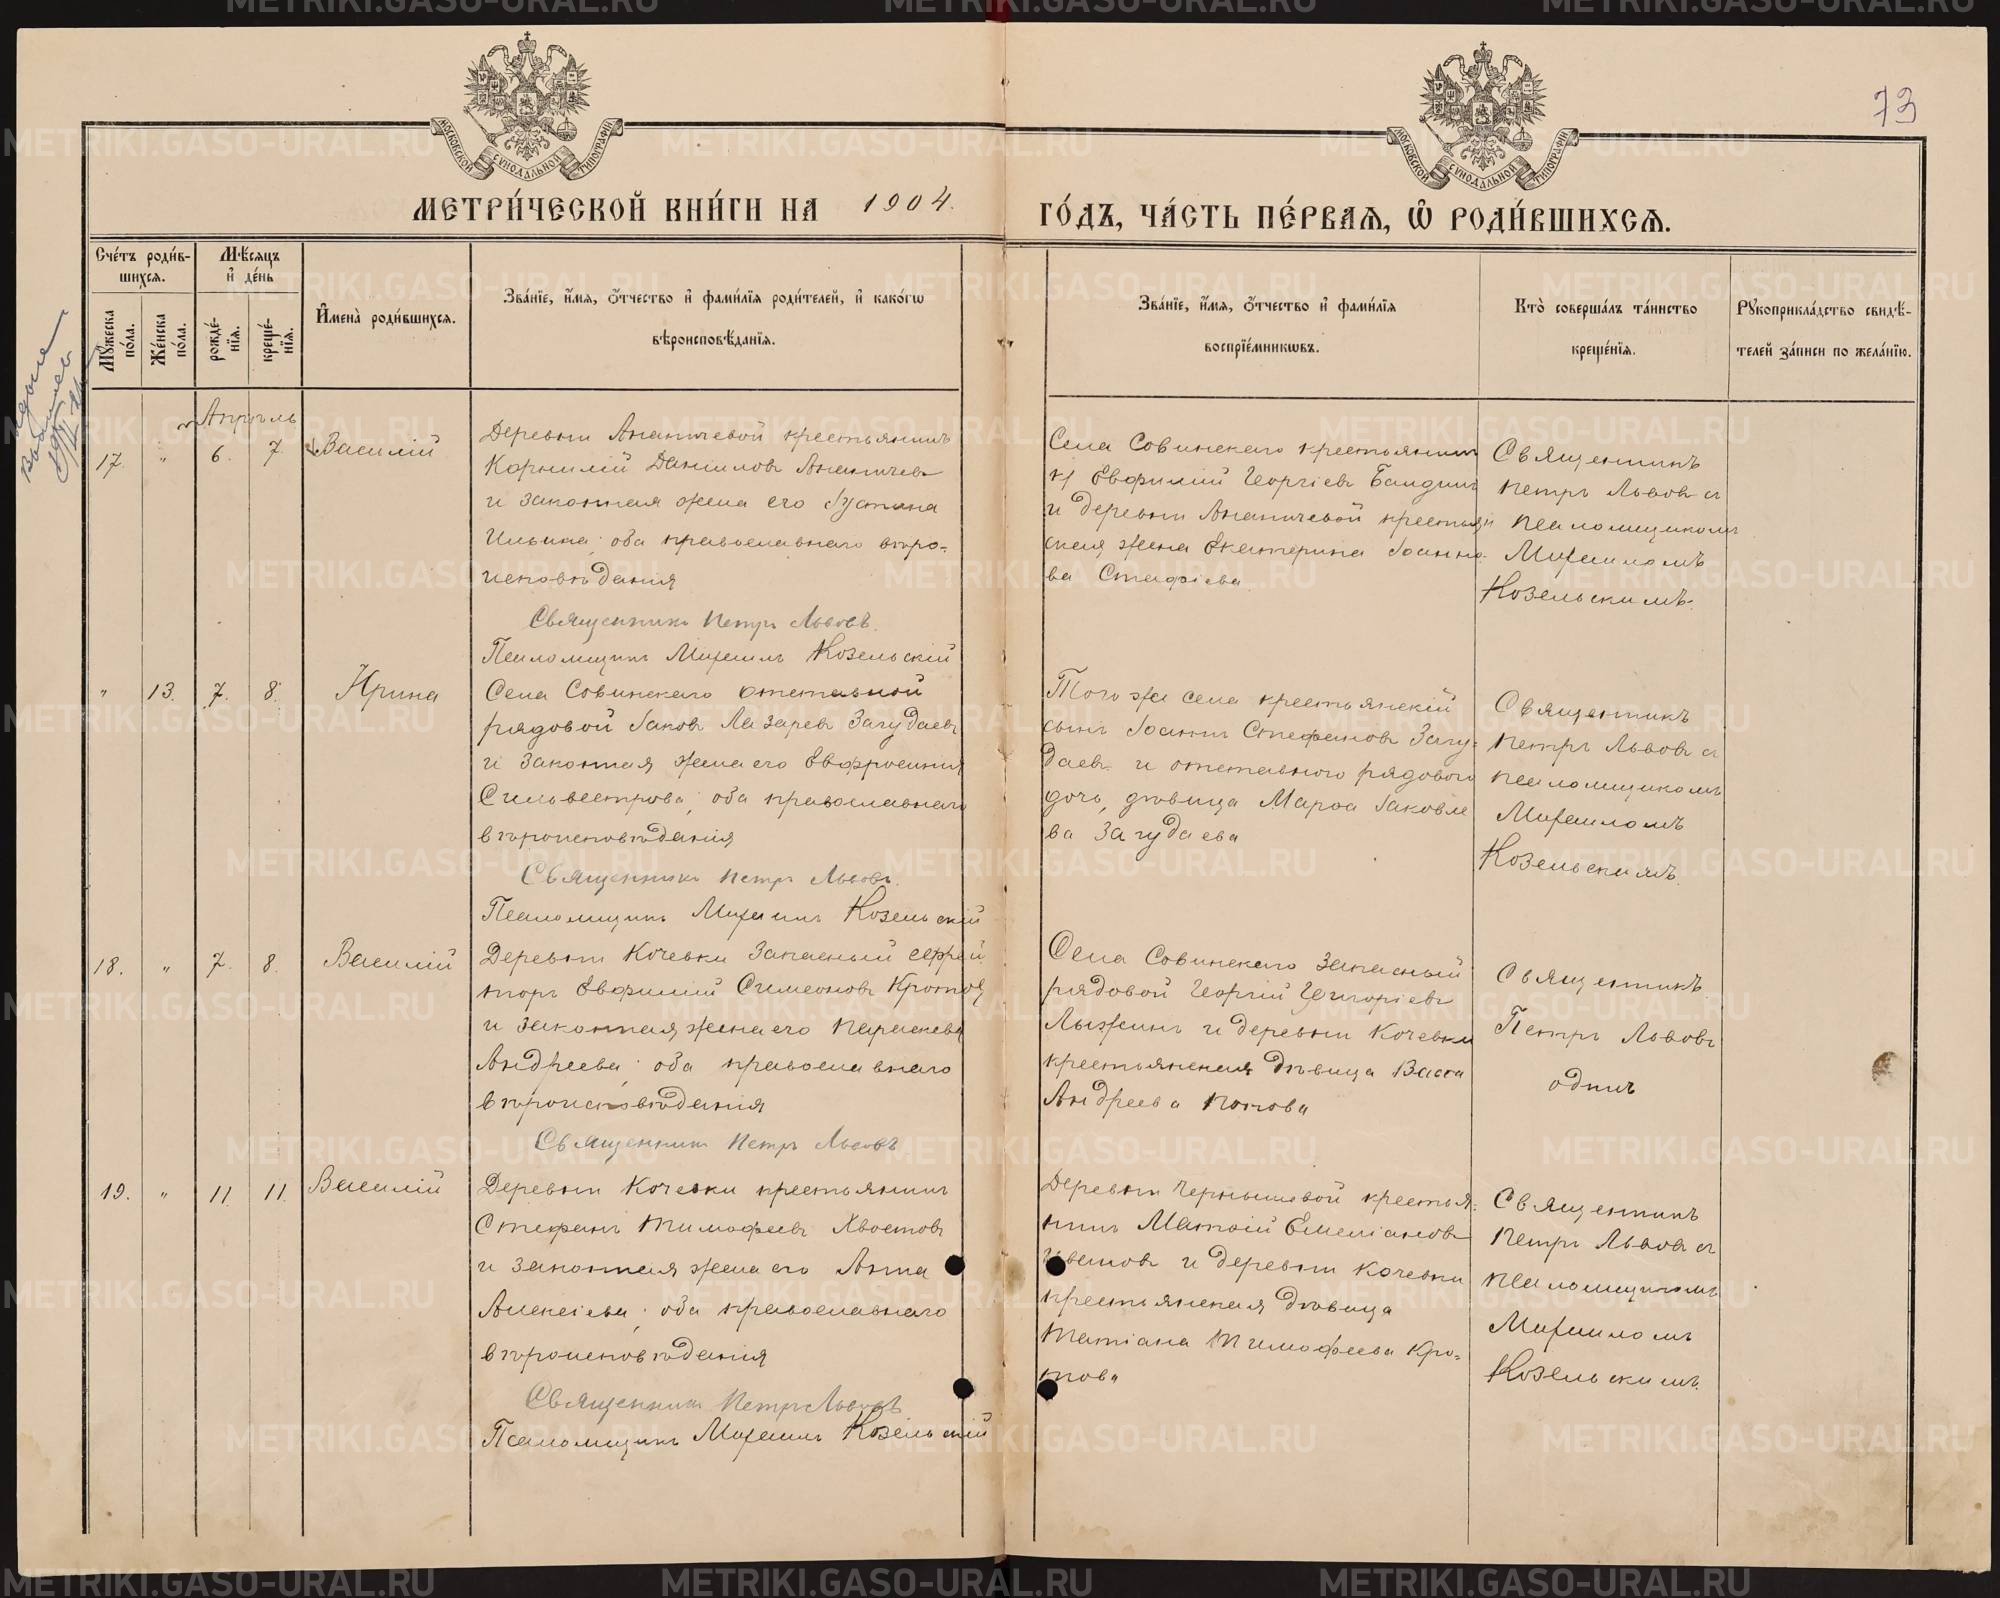 73
МОСКОВСКОЙ СѴНОДАЛЬНОЙ ТИПОГРАФІИ
МОСКОВСКОЙ СѴНОДАЛЬНОЙ ТИПОГРАФІИ
МЕТРИ́ЧЕСКОЙ КНИ́ГИ НА 1904. ГО́ДЪ, ЧА́СТЬ ПЕ́РВАѦ, Ѽ РОДИ́ВШИХСѦ.
Сче́тъ роди́в-
шихсѧ.
Мꙋ́жеска по́ла.
Же́нска по́ла.
Мѣ́сѧцъ
и҆ де́нь
рожде́-
нїѧ.
креще́-
нїѧ.
И҆мена̀ роди́вшихсѧ.
Зва́нїе, и҆́мѧ, ѻ҆́тчество и҆ фами́лїѧ роди́телей, и҆ како́гѡ
вѣроисповѣ́данїѧ.
Зва́нїе, и҆́мѧ, ѻ҆́тчество и҆ фами́лїѧ
воспрїе́мникѡвъ.
Кто̀ соверша́лъ та́инство
креще́нїѧ.
Рꙋкоприкла́дство свидѣ́-
телей за́писи по жела́нїю.
Апрѣль
17. " 6. 7. Василій
Деревни Ананичевой крестьянинъ
Корнилій Даніиловъ Ананичевъ
и законная жена его Іустина
Ильина; оба православнаго вѣро-
исповѣданія
Священникъ Петръ Львовъ.
Псаломщикъ Михаилъ Козельскій
Села Совинскаго крестьянинъ
Евфимій Георгіевъ
и деревни Ананичевой крестьян
ская жена Екатерина Іоанно-
ва
Священникъ
Петръ Львовъ съ
псаломщикомъ
Михаиломъ
Козельскимъ.
" 13. 7. 8. Ирина
Села Совинскаго отставной
рядовой Іаковъ Лазаревъ Загудаевъ
и законная жена его Евфросинія
Сильвестрова; оба православнаго
вѣроисповѣданія
Священникъ Петръ Львовъ.
Псаломщикъ Михаилъ Козельскій
Того же села крестьянскій
сынъ Іоаннъ Стефановъ Загу-
даевъ и отставного рядового
дочь, дѣвица Марѳа Іаковле
ва Загудаева
Священникъ
Петръ Львовъ съ
псаломщикомъ
Михаиломъ
Козельскимъ.
18. " 7. 8. Василій
Деревни Кочевки запасный ефрей
торъ Евфимій Симеоновъ Кротовъ
и законная жена его Параскева
Андреева; оба православнаго
вѣроисповѣданія
Священникъ Петръ Львовъ
Села Совинскаго запасный
рядовой Георгій Григоріевъ
Лыжинъ и деревни Кочевки
крестьянская дѣвица Васса
Андреева Котова
Священникъ
Петръ Львовъ
одинъ
19. " 11. 11. Василій
Деревни Кочевки крестьянинъ
Стефанъ Тимофеевъ Хвостовъ
и законная жена его Анна
Алексіева; оба православнаго
вѣроисповѣданія
Священникъ Петръ Львовъ
Псаломщикъ Михаилъ Козельскій
Деревни Чернышевой крестья-
нинъ Матѳій Емеліановъ
и деревни Кочевки
крестьянская дѣвица
Татіана Тимофеева Кро-
това
Священникъ
Петръ Львовъ съ
псаломщикомъ
Михаиломъ
Козельскимъ.
METRIKI.GASO-URAL.RU